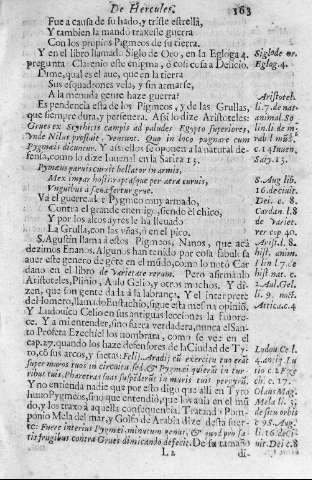 De Hercules. 163
Fue a causa de su hado, y triste estrella,
Y tambien la mando traxesse guerra
Con los propios Pigmeos de su tierra.
Y en el libro llamado Siglo de Oro, en la Egloga 4.
pregunta Clarenio este enigma, ó cosicosa a Delicio.
Dime, qual es el aue, que en la tierra
Sus esquadrones vela, y sin armarse,
A la menuda gente haze guerra?
Es pendencia esta de los Pigmeos, y de las Grullas,
que siempre dura, y persevera. Assi lo dize Aristoteles:
Grues ex Scythicis campis ad paludes Egypto superiores,
Vnde Nilus profluit, veniunt. Quo in loco pugnare cum
Pygmæis dicuntur. Y assi ellos se oponen a la natural de-
fensa, como lo dize Iuuenal en la Satira 13.
Pymæus paruis currit bellator in armis,
Mox impar hosti, raptusque per aera curuis,
Vnguibus a sæua fertur grue.
Va el guerrear Pygmeo muy armado,
Contra el grande enemigo, siendo él chico,
Y por los alcos ayres le ha lleuado
La Grulla, con las vñas, ó en el pico.
S. Agustin llama à estos Pigmeos, Nanos, que acà
dezimos Enanos. Algunos han tenido por cosa fabulosa
auer este genero de gente en el mundo, como lo notó Car
dano en el libro de varietate rerum. Pero afirmanlo
Aristoteles, Plinio, Aulo Gelio, y otros muchos. Y di-
zen, que son gente dada à la labrança, Y el interprete
de Homero, llamado Eustachio, sigue esta mesma opinió.
Y Ludouico Celio en sus antiguas lecciones la fauore-
ce. Y a mi entender, sino fuera verdadera, nunca el San-
to Profeta Ezechiel los nombrara, como se vee en el
cap. 27. quando los haze defensores de la Ciudad de Ty
ro, có sus arcos, y faetas: Filij Aradij cũ exercitu tuo erãt
super muros tuos in circuitu sed, & Pigmæi quierũt in tur-
ribus tuis, pharetras suas suspẽderũt in muris tuis per gyrũ.
Y no entienda nadie que por esto digo que allí en Tyro
huuo Pygmeos, sino que entendió, que los auia en el mũ
do, y los traxo à aquella consequencia. Tratando Pom-
ponio Mela del mar, y Golfo de Arabia dize desta suer-
te: Fuere interius Pygmei, minutum genus, & quod pro sa-
tis frugibus contra Grues dimicando defecit. De su tamaño
L 2 di-
Siglo de or.
Eglog. 4.
Aristotel.
li. 7. de nat.
animal. So
lin. li. de mi
rab. mũd.
c. 14 Iuuen.
Saty. 13.
S. Aug. lib.
16. de ciuit.
Dei. c. 8.
Cardan. l. 8
de Variet.
rer. cap. 40.
Aristot. l. 8.
hist. anim.
Plin l. 7. de
hist. nat. c.
2. Aul. Gel.
li. 9. noct.
Attic. c. 4
Ludou. Cel. l.
4. antiq. Le
ctio c. 3 Eze
ch. c. 27.
Olaus Mag.
Mela li. 3.
de situ orbis
c 9 S. Aug.
li. 16. de ci-
uit. Dei c. 8